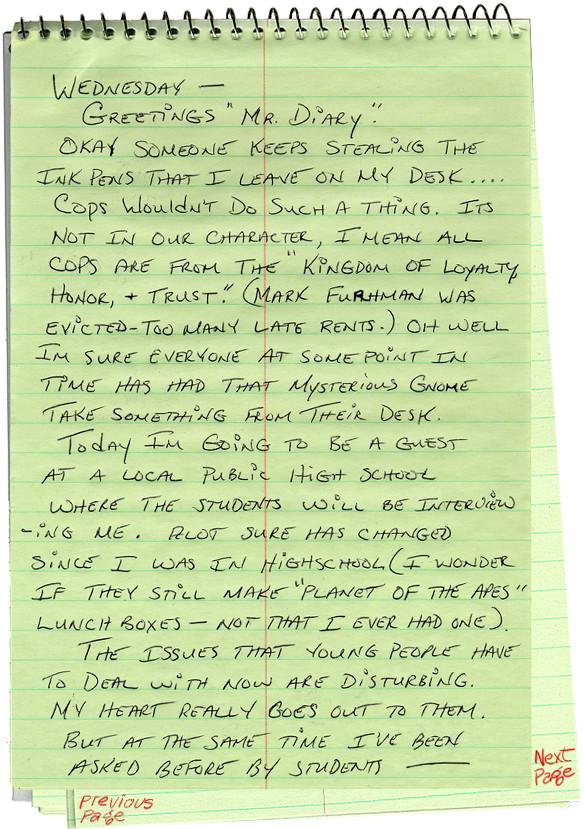 WEDNESDAY —
GREETINGS "MR. DIARY".
OKAY SOMEONE KEEPS STEALING THE
INK PENS THAT I LEAVE ON MY DESK....
COPS WOULDN'T DO SUCH A THING. ITS
NOT IN OUR CHARACTER, I MEAN ALL
COPS ARE FROM THE "KINGDOM OF LOYALTY,
HONOR, + TRUST." (MARK FURHMAN WAS
EVICTED-TOO MANY LATE RENTS.) OH WELL
IM SURE EVERYONE AT SOME POINT IN
TIME HAS HAD THAT MYSTERIOUS GNOME
TAKE SOMETHING FROM THEIR DESK.
TODAY IM GOING TO BE A GUEST
AT A LOCAL PUBLIC HIGH SCHOOL
WHERE THE STUDENTS WILL BE INTERVIEW
-ING ME. ALOT SURE HAS CHANGED
SINCE I WAS IN HIGHSCHOOL (I WONDER
IF THEY STILL MAKE "PLANET OF THE APES"
LUNCH BOXES — NOT THAT I EVER HAD ONE).
THE ISSUES THAT YOUNG PEOPLE HAVE
TO DEAL WITH NOW ARE DISTURBING.
MY HEART REALLY GOES OUT TO THEM.
BUT AT THE SAME TIME I'VE BEEN
ASKED BEFORE BY STUDENTS ——
Next
Page
Previous
Page